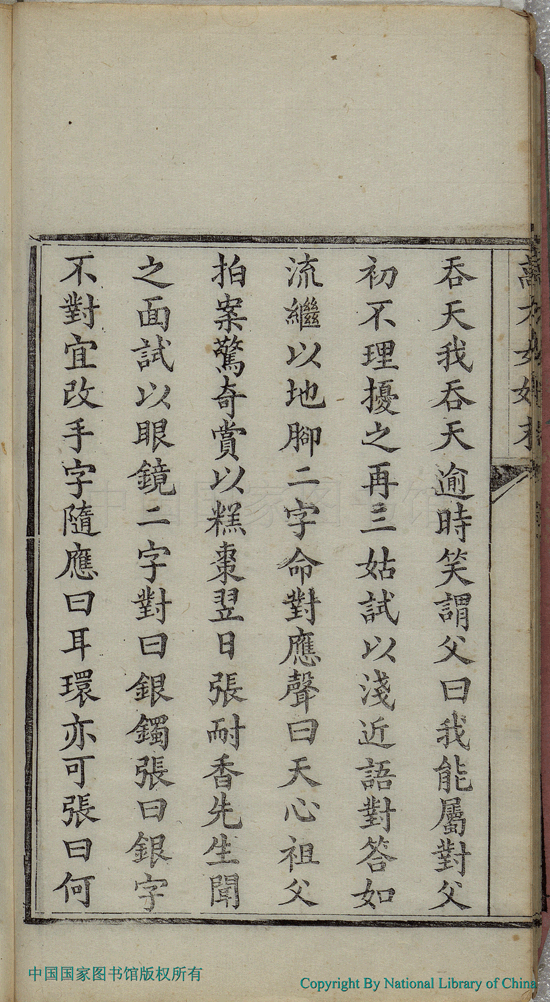 吞天我吞天逾時笑謂父曰我能屬對父
初不理擾之再三姑試以淺近語對答如
流繼以地腳二字命對應聲曰天心祖父
拍案驚奇賞以糕棗翌日張耐香先生聞
之面試以眼鏡二字對曰銀鐲張曰銀字
不對宜改手字隨應曰耳環亦可張曰何
中国国家图书馆版权所有
Copyright By National Library of China